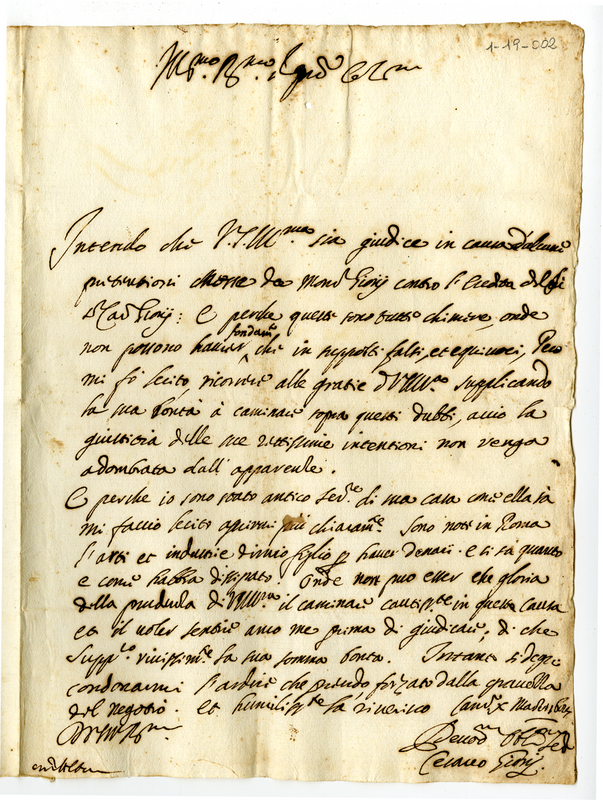 1-19-002
Ill.mo R.mo Sig.re
Intendo che V.S. Ill.ma sia giudice in causa d'alcune
pretensioni mosse da Mons.r Giorij contro l'Eredità del fù
S.r Car. Giorij: E perche queste sono tutte chimere, onde
non possono haver fondam.to che in supposti falsi, et equivoci, Però
mi fò lecito, ricorrere alle gratie di V.S. Ill.ma supplicando
la sua bontà à caminare sopra questi dubbi, acciò la
giustitia delle sue rettissime intentioni non venga
adombrata dall' apparenze.
E perche io sono stato antico ser.re di sua casa come ella sà
mi faccio lecito aprirmi più chiaram.te. Sono note in Roma
l'arti et industrie di mio figlio p haver denari. e si sà quanto
e come habbia dissipato. Onde non puo esser che gloria
della prudenza di V.S. Ill.ma il caminare cautiss.te in questa causa
et il voler sentire anco me prima di giudicare, di che
supp.co vivissim.te la sua somma bontà. Intanto si degni
condonarmi l'ardire che prendo, forzato dalla gravezza
del negotio. et humiliss.te la riverisco Cam.o x
Di V.S. Ill.ma R.ma
Devot.mo Obl.mo Ser.
Giorij.